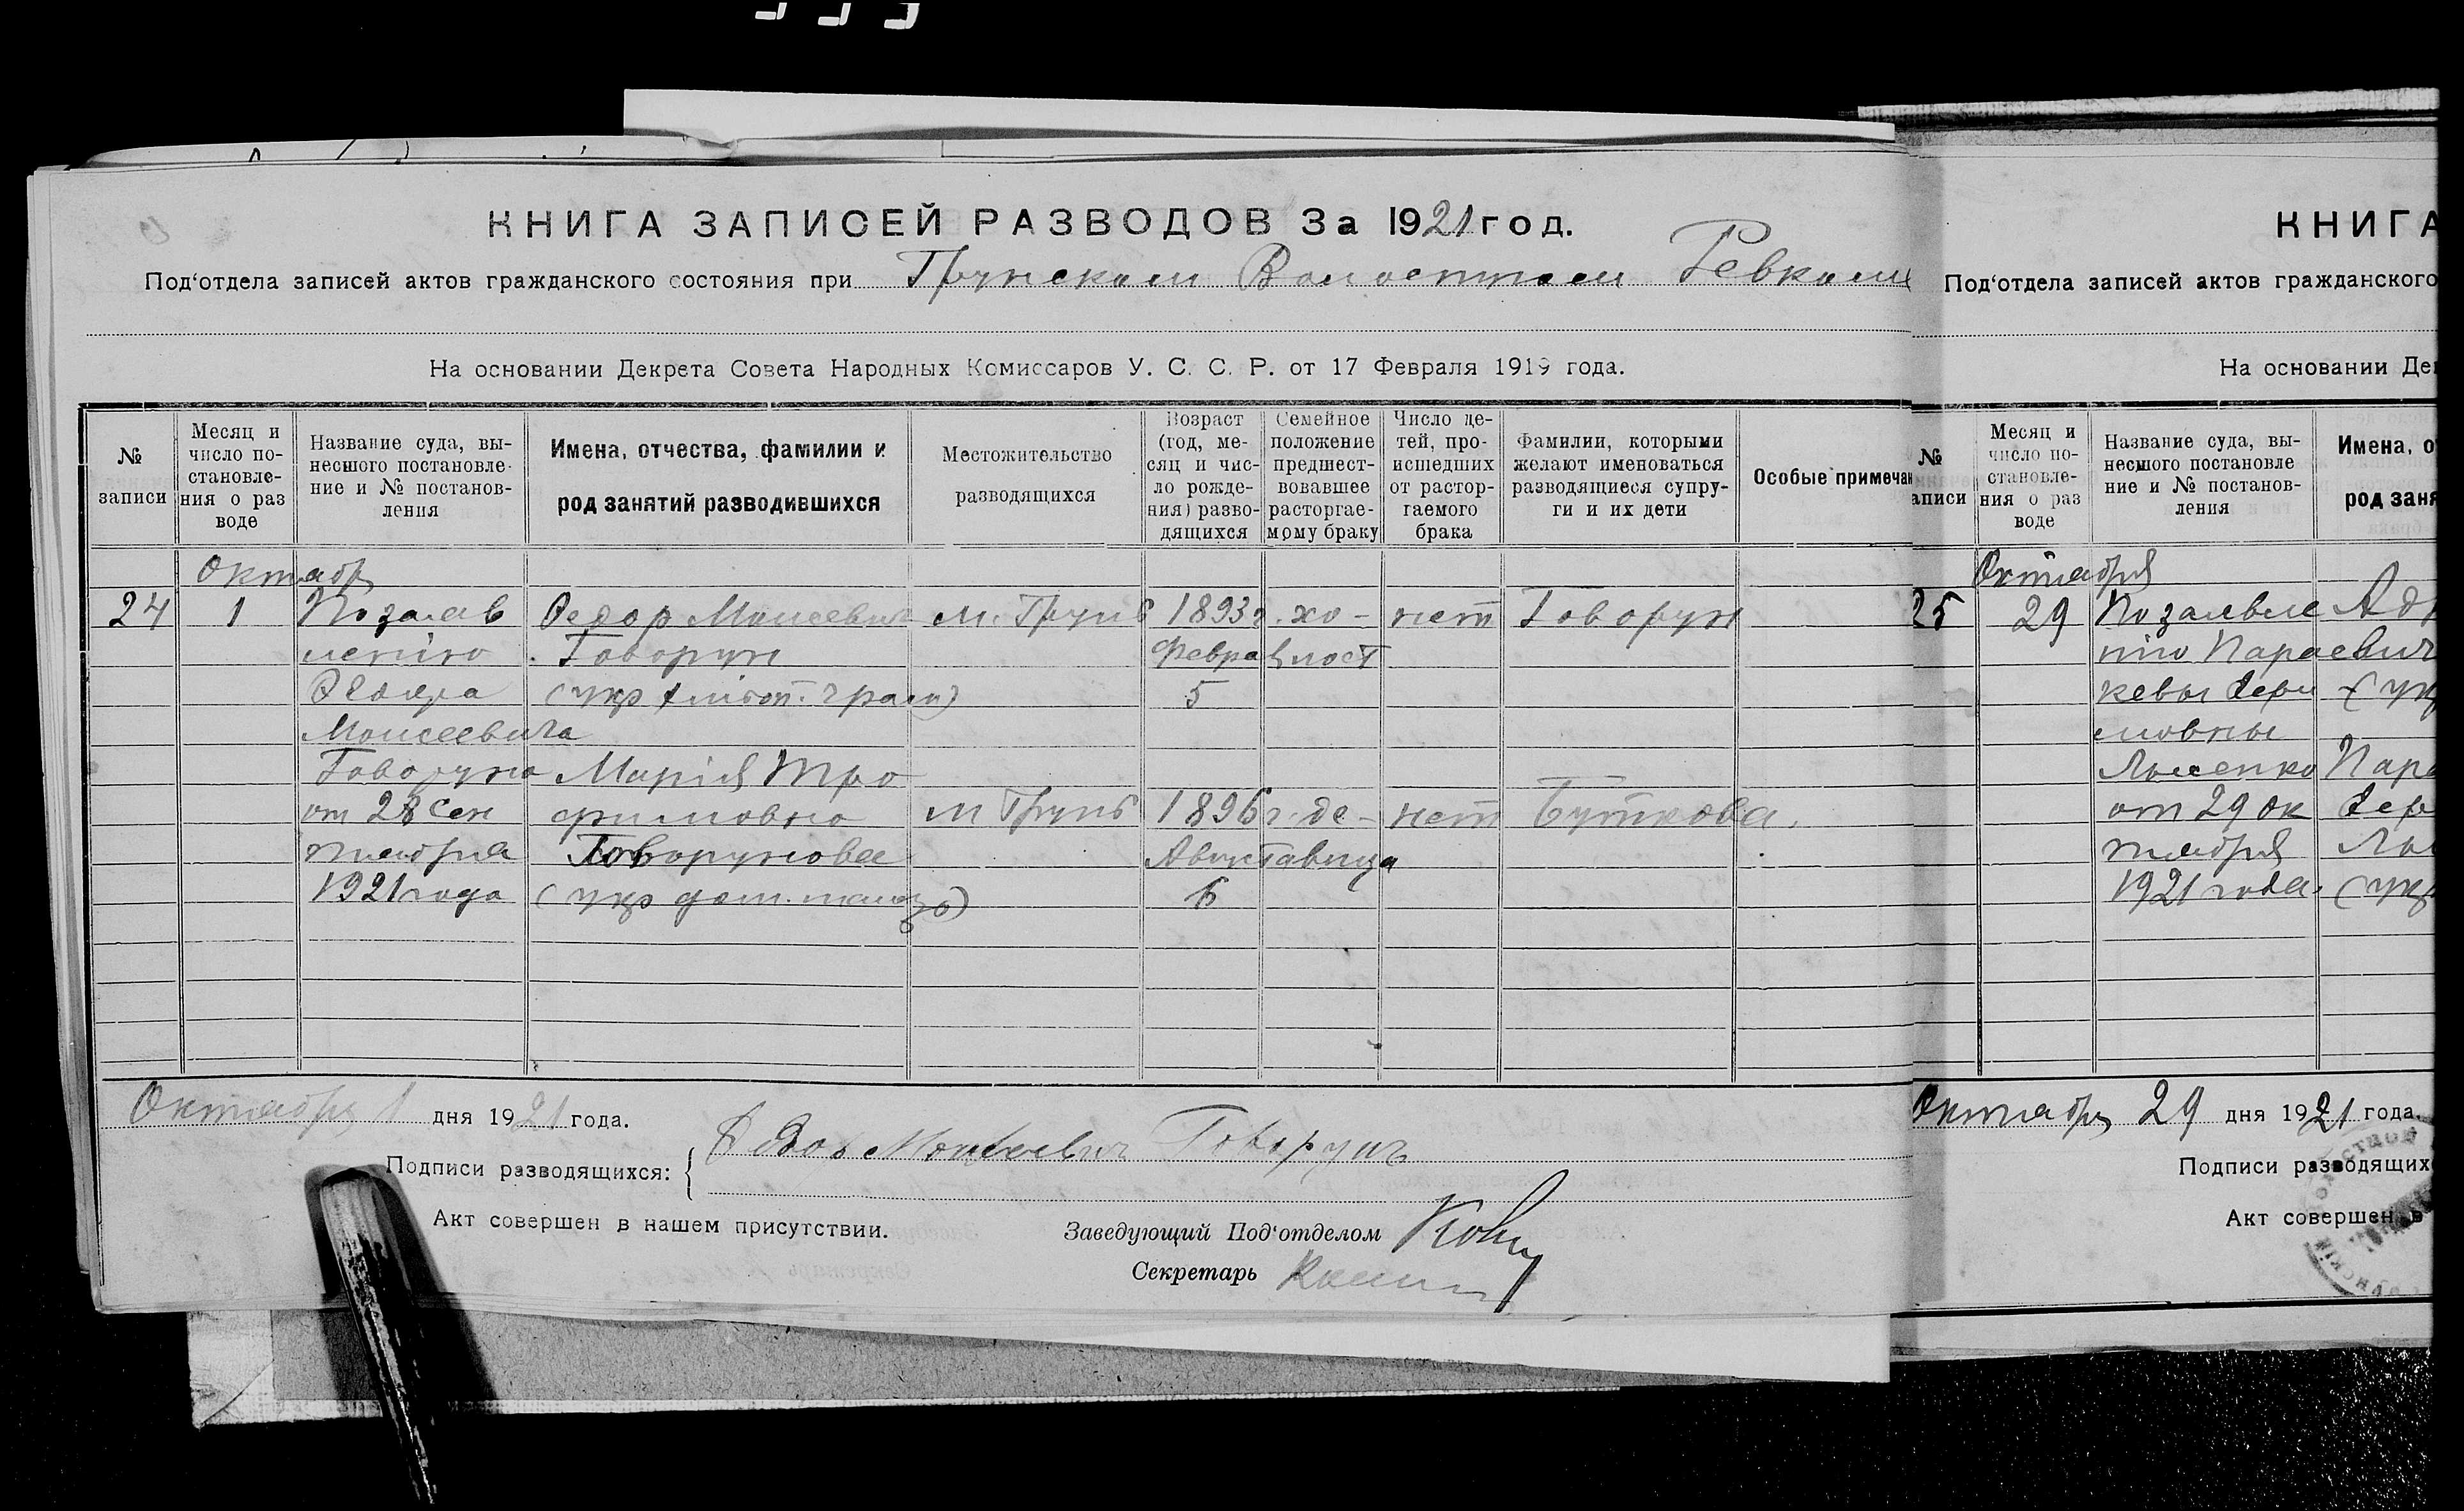 КНИГА ЗАПИСЕЙ РАЗВОДОВ За 1921 год.
Под'отдела записей актов гражданского состояния при Грунском Волостном Ревком
На основании Декрета Совета Народных Комиссаров У. С. С. Р. от 17 Февраля 1919 года.
№ записи
Месяц и число постановления о разводе
Название суда, вы-
несшого постановле-
ние и № постанов-
ления
Имена, отчества, фамилии и
род занятий разводившихся
Местожительство
разводящихся
Возраст
(год, ме-
сяц и чис-
ло рожде-
ния) разво-
дящихся
Семейное
положение
предшест-
вовавшее
расторгае-
мому браку
Число де-
тей, про-
исшедших
от растор-
гаемого
брака
Фамилии, которыми
желают именоваться
разводящиеся супру-
ги и их дети
Особые примечан
Октябр
24 1 По заяв Федор Моисеевич м. Грунь 1893 г. хо- нет Говорун
лению Говорун Февра лост
Федора (укр граж) 5
Моисеевича
Говоруна Мария Тро
от 28 сен фимовна м Грунь 1896 г. де- нет Буткова.
тября Говорунова Август вица
1921 года (укр дом. ) 6
Октября 1 дня 1921 года.
Подписи разводящихся: Федор Моисеевич Говорунъ
Акт совершен в нашем присутствии.
Заведующий Под'отделом
Секретарь
КНИГА
Под'отдела записей актов гражданского
На основании Де
№
аписи
Месяц и
число по-
становле-
ния о раз
воде
Название суда, вы-
несшого постановле
ние и № постанов-
ления
Имена, о
род заня
Октября
25 29 По заявле
нию Пара евич
кевы (ук
мовны
Лысенко Пара
от 29 ок
тября Лы
1921 года. (ук
Октябр 29 дня 1921 года.
Подписи разводящих
Акт совершен в